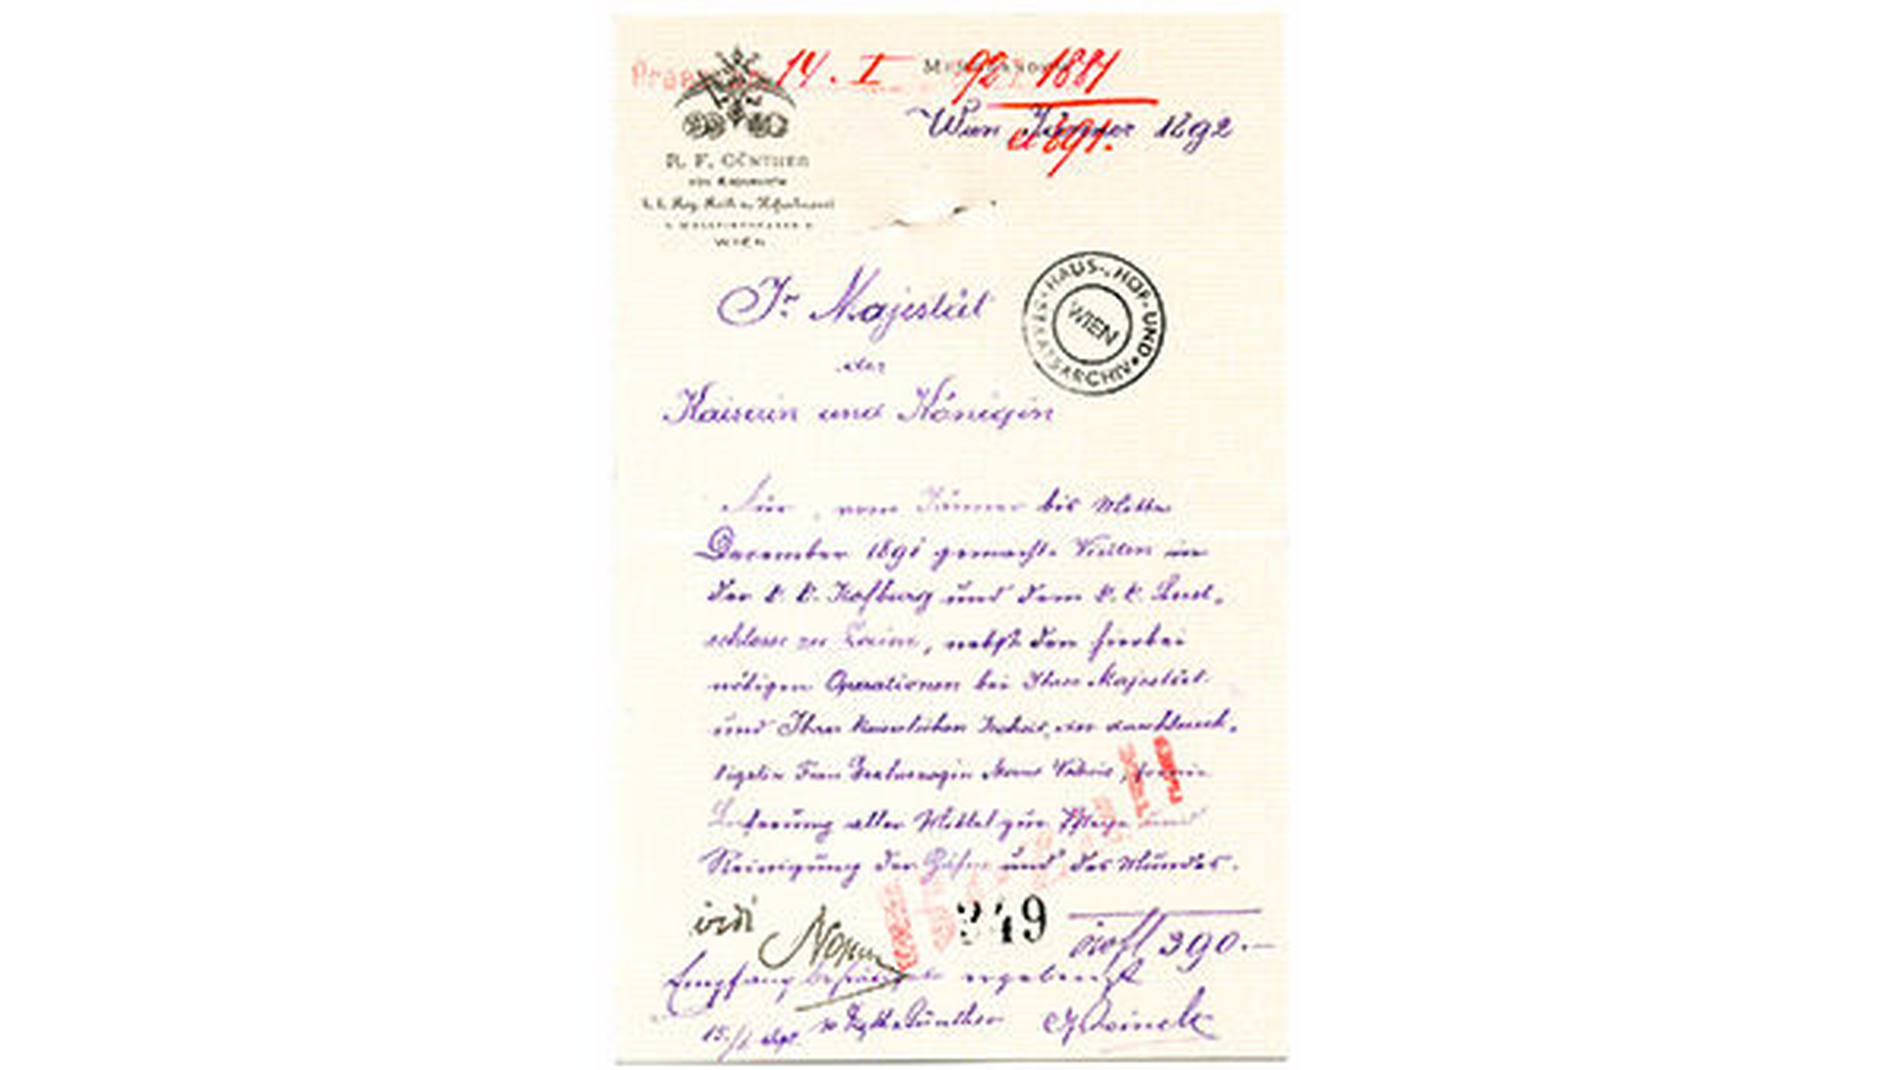 14. I 92 1881
Wien Jänner 1892
R. F. GÜNTHER
WIEN
HAUS-, HOF- UND STAATSARCHIV
WIEN
Majestät
der
Kaiserin und Königin
Für, vom Jänner bis Mitte
December 1891 gemachte Visiten in
der k. k. Hofburg und dem k. k. Lust-
schlosse zu Lainz, nebst den hierbei
nötigen Operationen bei Ihrer Majestät
und Ihrer Kaiserlichen Hoheit, der durchlauch-
tigsten Frau Erzherzogin Marie Valerie, sowie
Lieferung aller Mittel zur Pflege und
Reinigung der Zähne und des Mundes.
vidi
349
390.—
Empfang bestätigt ergebenst
Günther